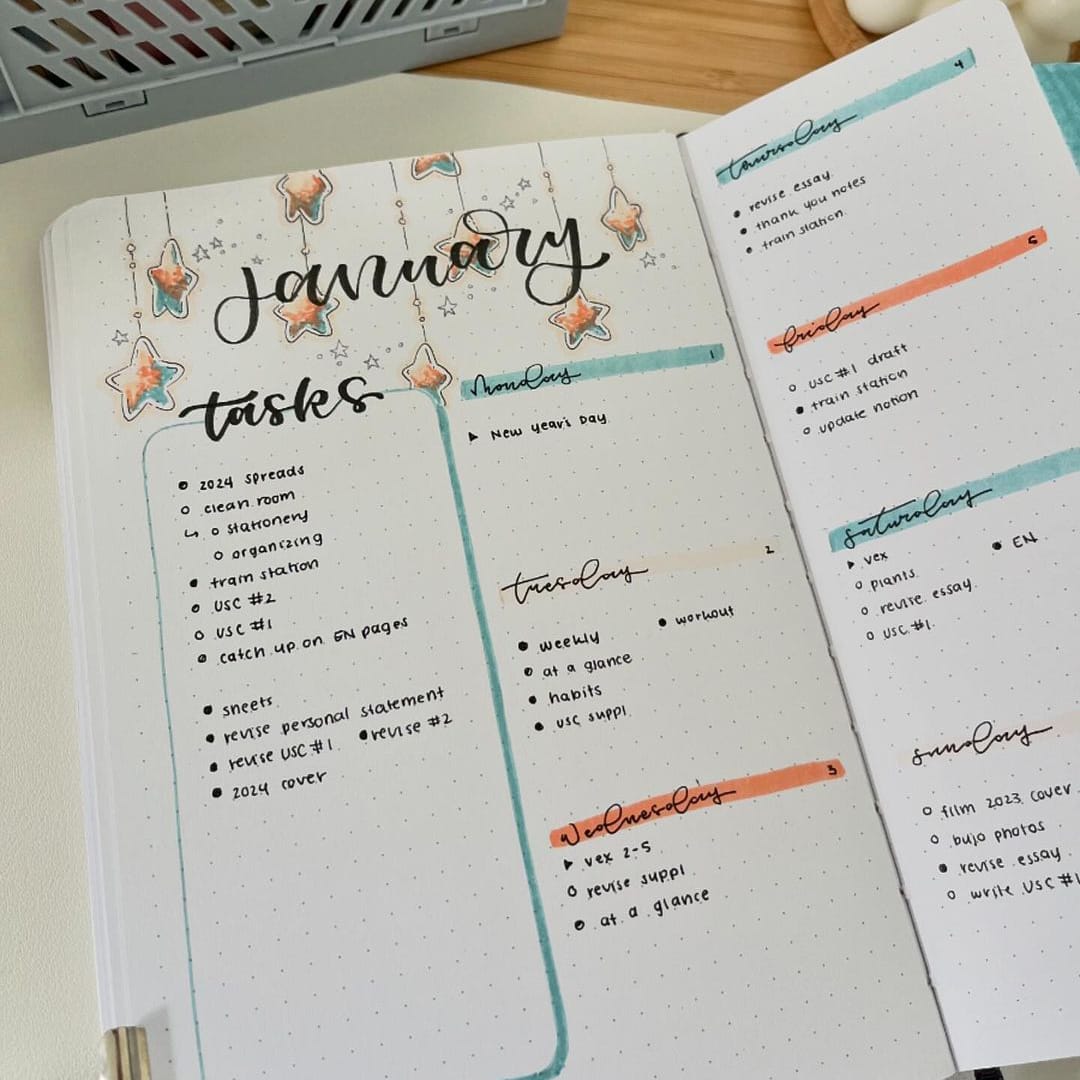 January
tasks
2024 spreads
clean room
↳ stationery
organizing
train station
USC #2
USC #1
catch up on EN pages
sheets
revise personal statement
revise USC #1 revise #2
2024 cover
Monday 1
New Year's Day
tuesday 2
weekly workout
at a glance
habits
USC suppl
Wednesday 3
vex 2-5
revise suppl
at a glance
thursday 4
revise essay
thank you notes
train station
friday 5
USC #1 draft
train station
update notion
saturday
vex EN
plants
revise essay
USC #1
sunday
film 2023 cover
bujo photos
revise essay
write USC #1